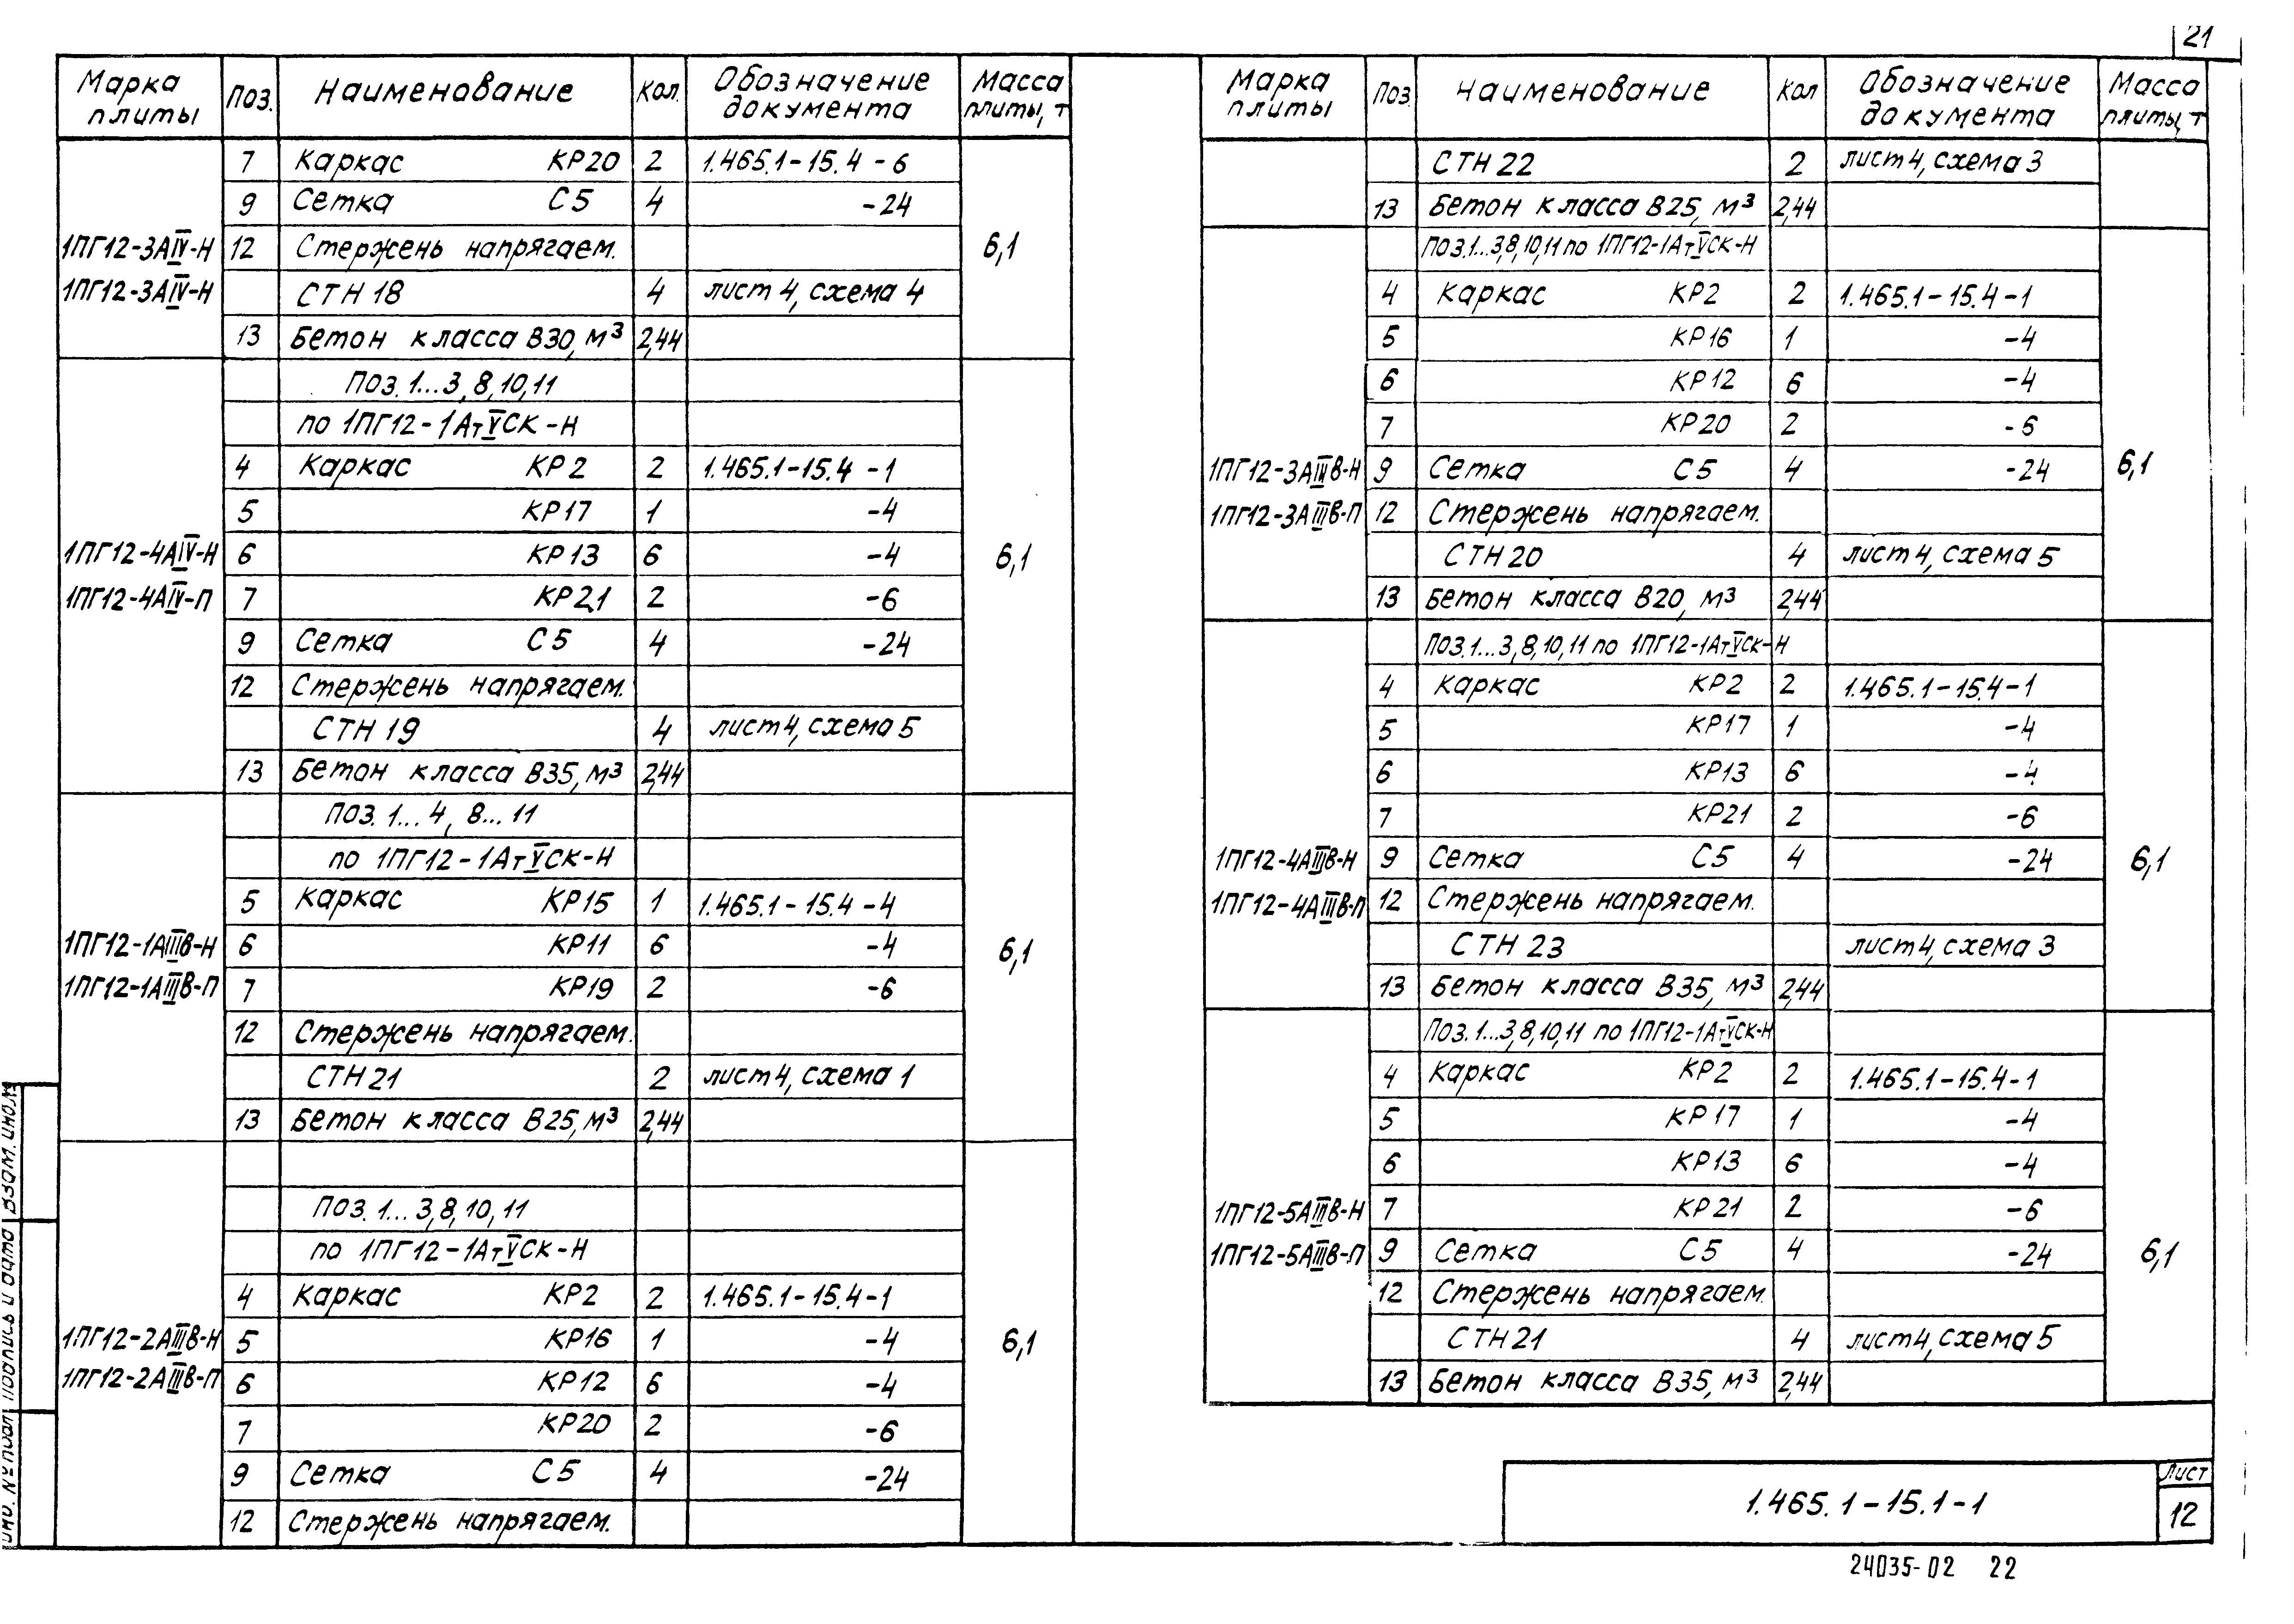 21
Марка плиты | Поз. | Наименование | Кол. | Обозначение документа | Масса плиты, т
7 | Каркас КР20 | 2 | 1.465.1-15.4-6
9 | Сетка С5 | 4 | -24
1ПГ12-3АIV-Н | 12 | Стержень напрягаем. | 6,1
1ПГ12-3АIV-Н | СТН 18 | 4 | лист 4, схема 4
13 | Бетон класса В30, м³ | 2,44
Поз. 1...3, 8, 10, 11
по 1ПГ12-1АтVСК-Н
4 | Каркас КР2 | 2 | 1.465.1-15.4-1
5 | КР17 | 1 | -4
1ПГ12-4АIV-Н | 6 | КР13 | 6 | -4 | 6,1
1ПГ12-4АIV-П | 7 | КР21 | 2 | -6
9 | Сетка С5 | 4 | -24
12 | Стержень напрягаем.
СТН 19 | 4 | лист 4, схема 5
13 | Бетон класса В35, м³ | 2,44
Поз. 1...4, 8...11
по 1ПГ12-1АтVСК-Н
5 | Каркас КР15 | 1 | 1.465.1-15.4-4
1ПГ12-1АIIIВ-Н | 6 | КР11 | 6 | -4 | 6,1
1ПГ12-1АIIIВ-П | 7 | КР19 | 2 | -6
12 | Стержень напрягаем.
СТН21 | 2 | лист 4, схема 1
13 | Бетон класса В25, м³ | 2,44
Поз. 1...3, 8, 10, 11
по 1ПГ12-1АтVСК-Н
4 | Каркас КР2 | 2 | 1.465.1-15.4-1
1ПГ12-2АIIIВ-Н | 5 | КР16 | 1 | -4 | 6,1
1ПГ12-2АIIIВ-П | 6 | КР12 | 6 | -4
7 | КР20 | 2 | -6
9 | Сетка С5 | 4 | -24
12 | Стержень напрягаем.
Марка плиты | Поз. | Наименование | Кол | Обозначение документа | Масса плиты, т
СТН 22 | 2 | лист 4, схема 3
13 | Бетон класса В25, м³ | 2,44
Поз.1...3,8,10,11 по 1ПГ12-1АтVСК-Н
4 | Каркас КР2 | 2 | 1.465.1-15.4-1
5 | КР16 | 1 | -4
6 | КР12 | 6 | -4
7 | КР20 | 2 | -6
1ПГ12-3АIIIВ-Н | 9 | Сетка С5 | 4 | -24 | 6,1
1ПГ12-3АIIIВ-П | 12 | Стержень напрягаем.
СТН20 | 4 | лист 4, схема 5
13 | Бетон класса В20, м³ | 2,44
Поз.1...3,8,10,11 по 1ПГ12-1АтVСК-Н
4 | Каркас КР2 | 2 | 1.465.1-15.4-1
5 | КР17 | 1 | -4
6 | КР13 | 6 | -4
7 | КР21 | 2 | -6
1ПГ12-4АIIIВ-Н | 9 | Сетка С5 | 4 | -24 | 6,1
1ПГ12-4АIIIВ-П | 12 | Стержень напрягаем.
СТН 23 | лист 4, схема 3
13 | Бетон класса В35, м³ | 2,44
Поз. 1...3,8,10,11 по 1ПГ12-1АтVСК-Н
4 | Каркас КР2 | 2 | 1.465.1-15.4-1
5 | КР17 | 1 | -4
6 | КР13 | 6 | -4
1ПГ12-5АIIIВ-Н | 7 | КР21 | 2 | -6
1ПГ12-5АIIIВ-П | 9 | Сетка С5 | 4 | -24 | 6,1
12 | Стержень напрягаем.
СТН21 | 4 | лист 4, схема 5
13 | Бетон класса В35, м³ | 2,44
1.465.1-15.1-1
Лист
12
24035-02 22
Инв. № подл. Подпись и дата Взам. инв. №